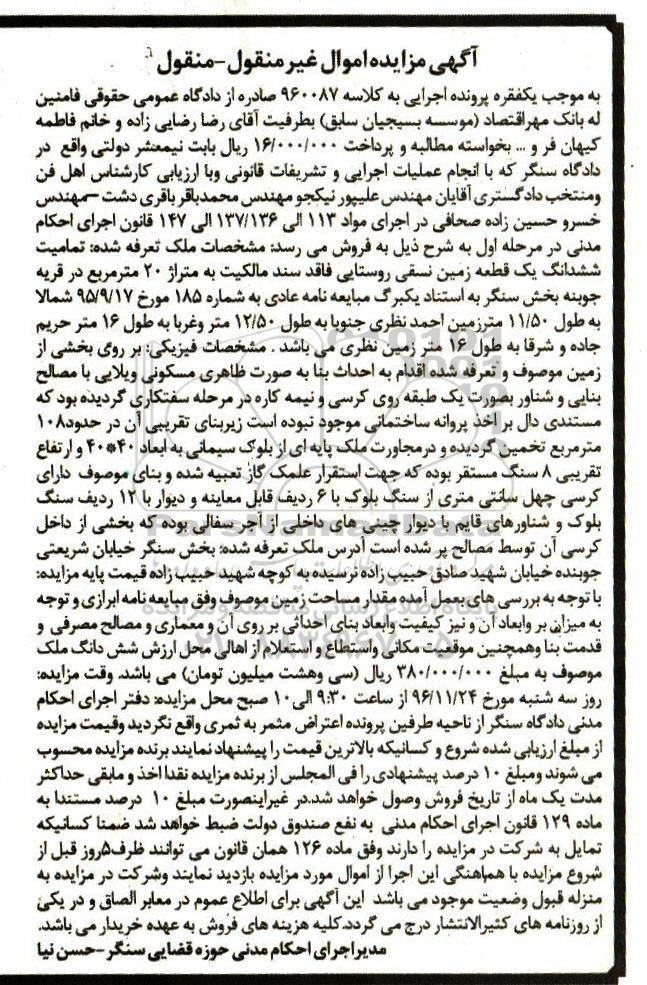 آگهی مزایده اموال غیر منقول-منقول
به موجب یکفقره پرونده اجرایی به کلاسه ۹۶۰۰۸۷ صادره از دادگاه عمومی حقوقی فامنین
له بانک مهراقتصاد (موسسه بسیجیان سابق) بطرفیت آقای رضا رضایی زاده و خانم فاطمه
کیهان فر و ... بخواسته مطالبه و پرداخت ۱۶/۰۰۰/۰۰۰ ریال بابت نیمعشر دولتی واقع در
دادگاه سنگر که با انجام عملیات اجرایی و تشریفات قانونی وبا ارزیابی کارشناس اهل فن
ومنتخب دادگستری آقایان مهندس علیپور نیکجو مهندس محمدباقر باقری دشت -مهندس
خسرو حسین زاده صحافی در اجرای مواد ۱۱۳ الی ۱۳۷/۱۳۶ الی ۱۴۷ قانون اجرای احکام
مدنی در مرحله اول به شرح ذیل به فروش می رسد: مشخصات ملک تعرفه شده: تمامیت
ششدانگ یک قطعه زمین نسقی روستایی فاقد سند مالکیت به متراژ ۲۰ مترمربع در قریه
جوبنه بخش سنگر به استناد یکبرگ مبایعه نامه عادی به شماره ۱۸۵ مورخ ۹۵/۹/۱۷ شمالا
به طول ۱۱/۵۰ مترزمین احمد نظری جنوبا به طول ۱۲/۵۰ متر وغربا به طول ۱۶ متر حریم
جاده و شرقا به طول ۱۶ متر زمین نظری می باشد . مشخصات فیزیکی: بر روی بخشی از
زمین موصوف و تعرفه شده اقدام به احداث بنا به صورت ظاهری مسکونی ویلایی با مصالح
بنایی و شناور بصورت یک طبقه روی کرسی و نیمه کاره در مرحله سفتکاری گردیده بود که
مستندی دال بر اخذ پروانه ساختمانی موجود نبوده است زیربنای تقریبی آن در حدود۱۰۸
مترمربع تخمین گردیده و درمجاورت ملک پایه ای از بلوک سیمانی به ابعاد ۴۰*۴۰ و ارتفاع
تقریبی ۸ سنگ مستقر بوده که جهت استقرار علمک گاز تعبیه شده و بنای موصوف دارای
کرسی چهل سانتی متری از سنگ بلوک با ۶ ردیف قابل معاینه و دیوار با ۱۲ ردیف سنگ
بلوک و شناورهای قایم با دیوار چینی های داخلی از آجر سفالی بوده که بخشی از داخل
کرسی آن توسط مصالح پر شده است آدرس ملک تعرفه شده: بخش سنگر خیابان شریعتی
جوبنده خیابان شهید صادق حبیب زاده نرسیده به کوچه شهید حبیب زاده قیمت پایه مزایده:
با توجه به بررسی های بعمل آمده مقدار مساحت زمین موصوف وفق مبایعه نامه ابرازی و توجه
به میزان بر وابعاد آن و نیز کیفیت وابعاد بنای احداثی بر روی آن و معماری و مصالح مصرفی و
قدمت بنا وهمچنین موقعیت مکانی واستطلاع و استعلام از اهالی محل ارزش شش دانگ ملک
موصوف به مبلغ ۳۸۰/۰۰۰/۰۰۰ ریال (سی وهشت میلیون تومان) می باشد. وقت مزایده:
روز سه شنبه مورخ ۹۶/۱۱/۲۴ از ساعت ۹:۳۰ الی ۱۰ صبح محل مزایده: دفتر اجرای احکام
مدنی دادگاه سنگر از ناحیه طرفین پرونده اعتراض مثمر به ثمری واقع نگردید وقیمت مزایده
از مبلغ ارزیابی شده شروع و کسانیکه بالاترین قیمت را پیشنهاد نمایند برنده مزایده محسوب
می شوند ومبلغ ۱۰ درصد پیشنهادی را فی المجلس از برنده مزایده نقدا اخذ و مابقی حداکثر
مدت یک ماه از تاریخ فروش وصول خواهد شد.در غیراینصورت مبلغ ۱۰ درصد مستندا به
ماده ۱۲۹ قانون اجرای احکام مدنی به نفع صندوق دولت ضبط خواهد شد ضمنا کسانیکه
تمایل به شرکت در مزایده را دارند وفق ماده ۱۲۶ همان قانون می توانند ظرف۵روز قبل از
شروع مزایده با هماهنگی این اجرا از اموال مورد مزایده بازدید نمایند وشرکت در مزایده به
منزله قبول وضعیت موجود می باشد این آگهی برای اطلاع عموم در معابر الصاق و در یکی
از روزنامه های کثیرالانتشار درج می گردد.کلیه هزینه های فروش به عهده خریدار می باشد.
مدیر اجرای احکام مدنی حوزه قضایی سنگر -حسن نیا